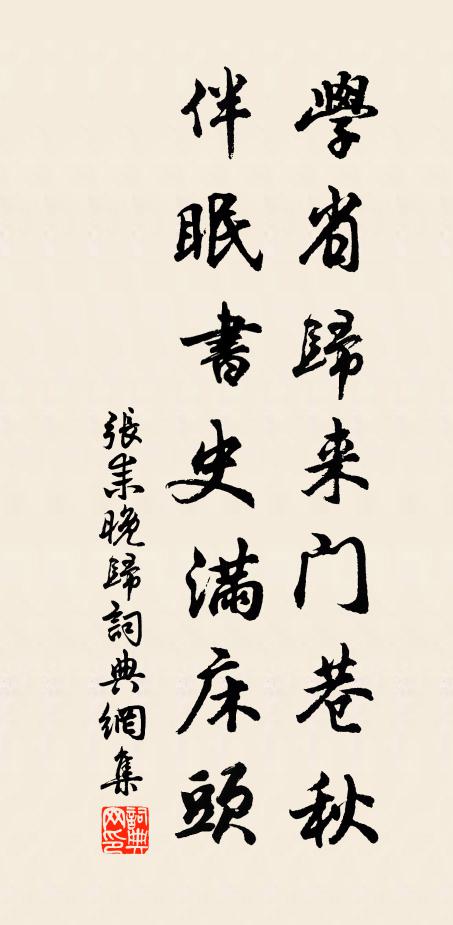 學省歸来門巷秋
伴眠書史滿床頭
張耒晚歸詞典網集
詞典网印